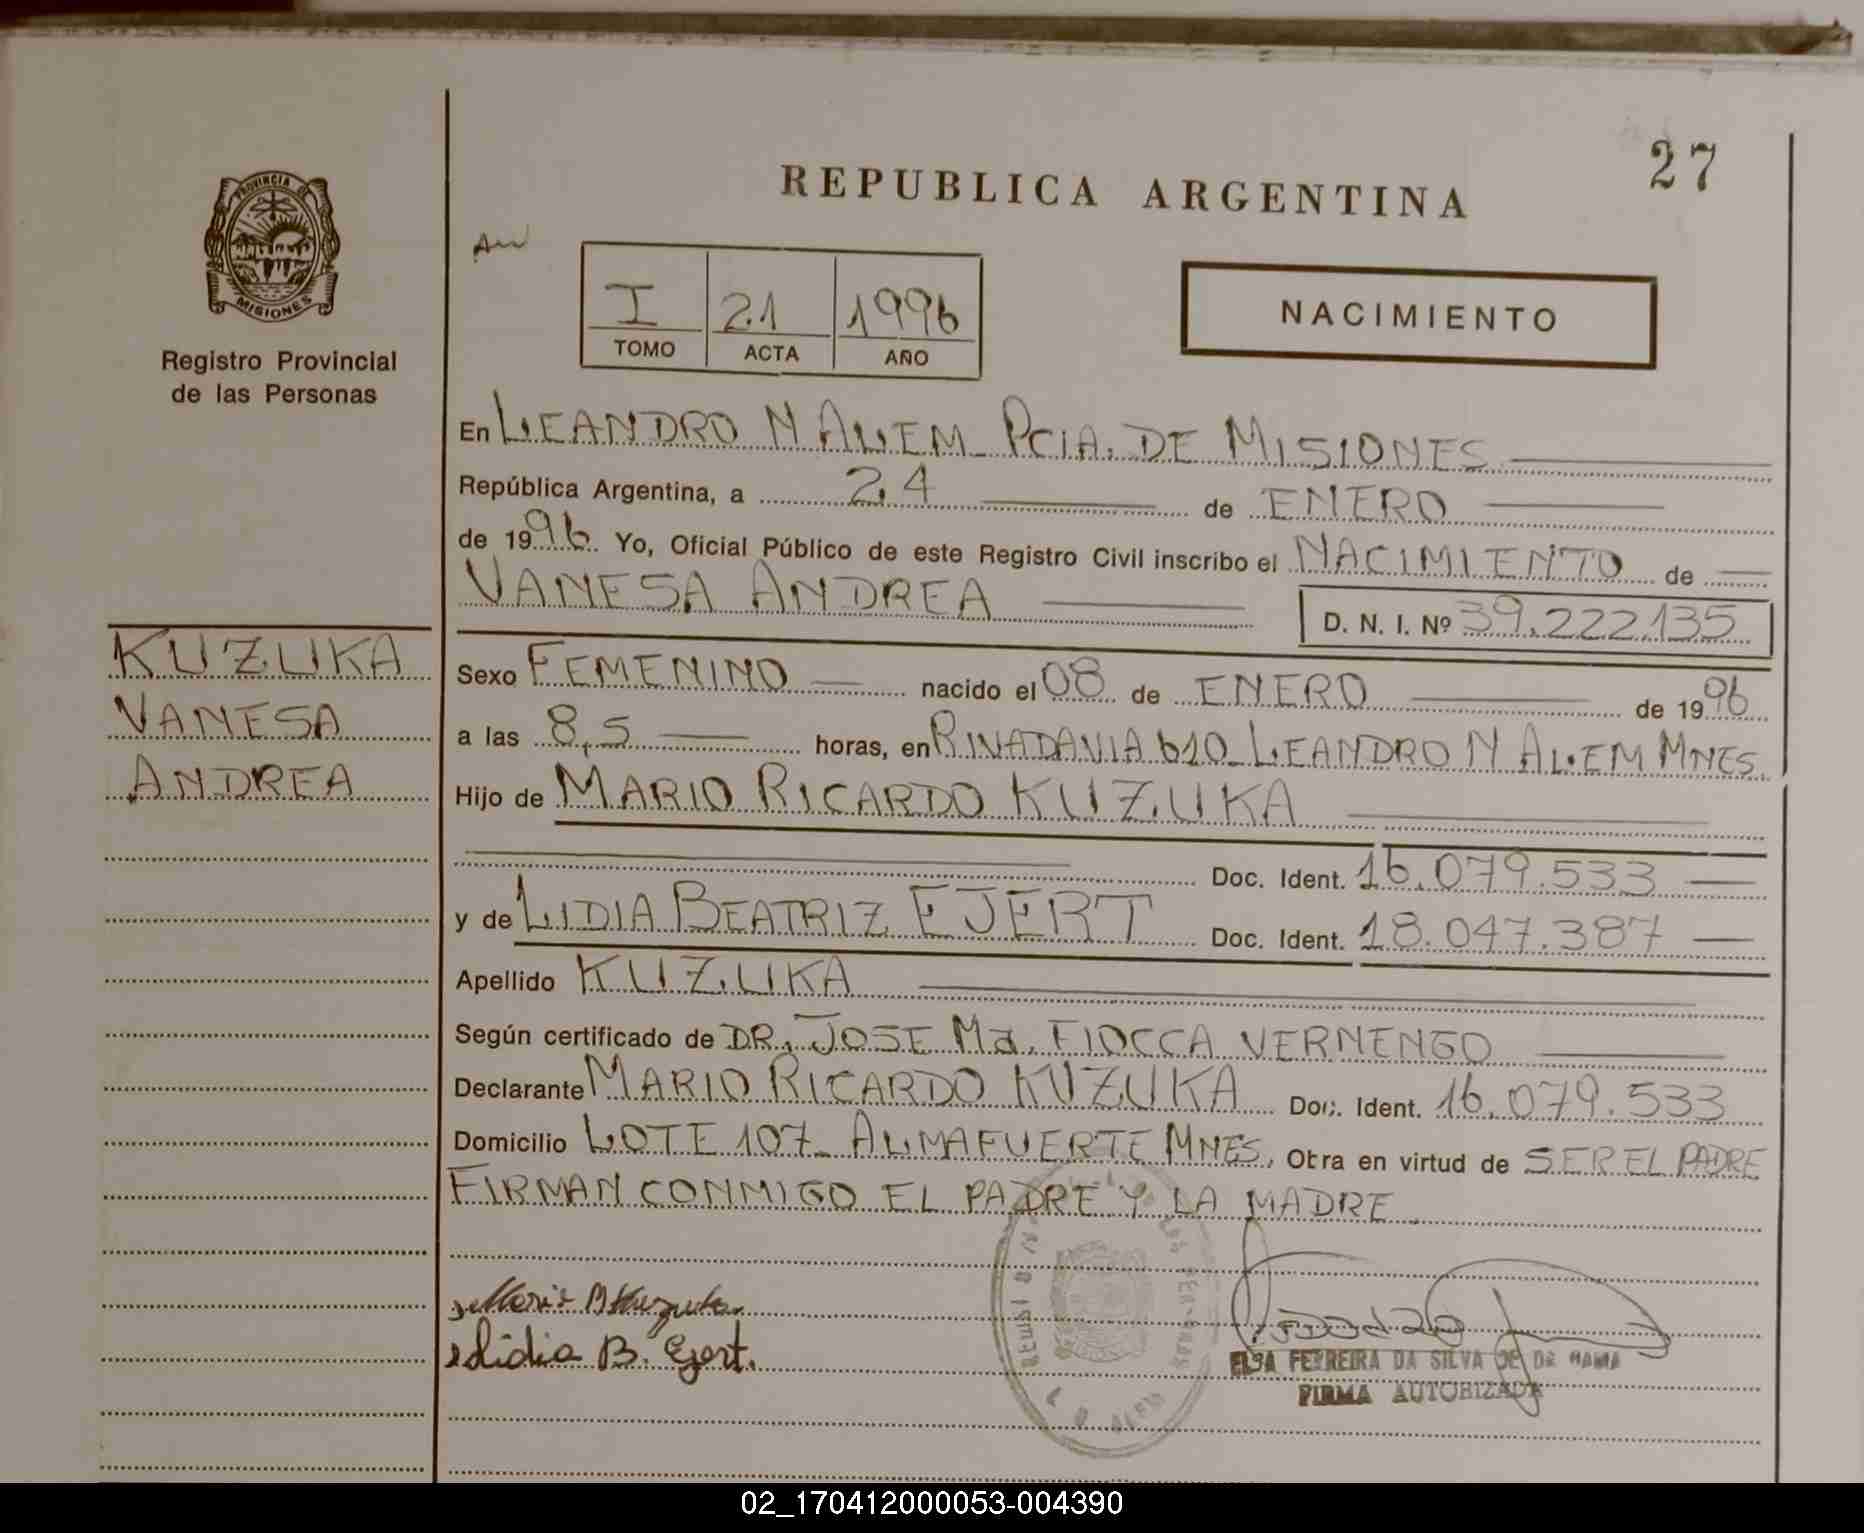 27
REPUBLICA ARGENTINA
PROVINCIA DE
MISIONES
Registro Provincial
de las Personas
I 21 1996
TOMO ACTA AÑO
NACIMIENTO
En LEANDRO N ALEM - PCIA. DE MISIONES
República Argentina, a 24 de ENERO
de 1996 Yo, Oficial Público de este Registro Civil inscribo el NACIMIENTO de
VANESA ANDREA D. N. I. Nº 39.222.135
KUZUKA
VANESA
ANDREA
Sexo FEMENINO nacido el 08 de ENERO de 1996
a las 8,5 horas, en RIVADAVIA 610 - LEANDRO N ALEM MNES.
Hijo de MARIO RICARDO KUZUKA
Doc. Ident. 16.079.533
y de LIDIA BEATRIZ EJERT Doc. Ident. 18.047.387
Apellido KUZUKA
Según certificado de DR. JOSE Ma. FIOCCA VERNENGO
Declarante MARIO RICARDO KUZUKA Doc. Ident. 16.079.533
Domicilio LOTE 107 - ALMAFUERTE MNES. Otra en virtud de SER EL PADRE
FIRMAN CONMIGO EL PADRE Y LA MADRE.
Mario R Kuzuka
Lidia B. Ejert.
ELSA FERREIRA DA SILVA DE DA GAMA
FIRMA AUTORIZADA
02_170412000053-004390